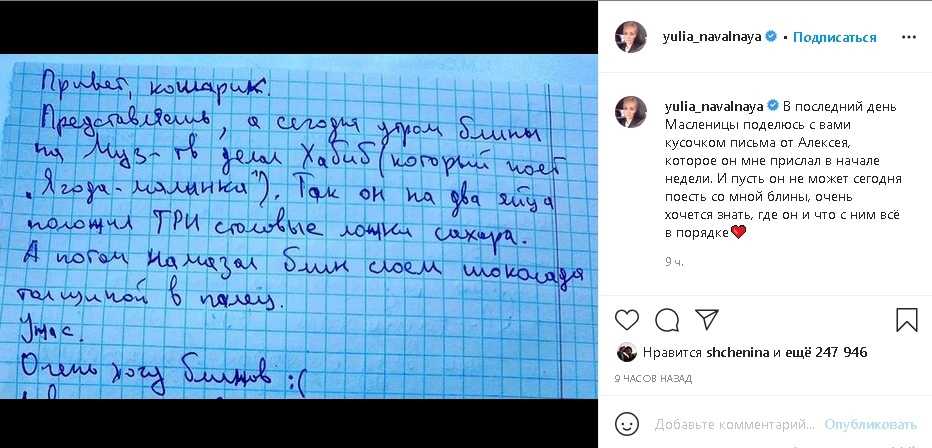 Привет, кошарик.
Представляешь, а сегодня утром блины
на Муз-тв делал Хабиб (который поет
"Ягода-малинка"). Так он на два яйца
положил ТРИ столовые ложки сахара.
А потом намазал блин слоем шоколада
толщиной в палец.
Ужас.
Очень хочу блинов :(
yulia_navalnaya • Подписаться
yulia_navalnaya В последний день
Масленицы поделюсь с вами
кусочком письма от Алексея,
которое он мне прислал в начале
недели. И пусть он не может сегодня
поесть со мной блины, очень
хочется знать, где он и что с ним всё
в порядке❤
9 ч.
Нравится shchenina и ещё 247 946
9 ЧАСОВ НАЗАД
Добавьте комментарий... Опубликовать